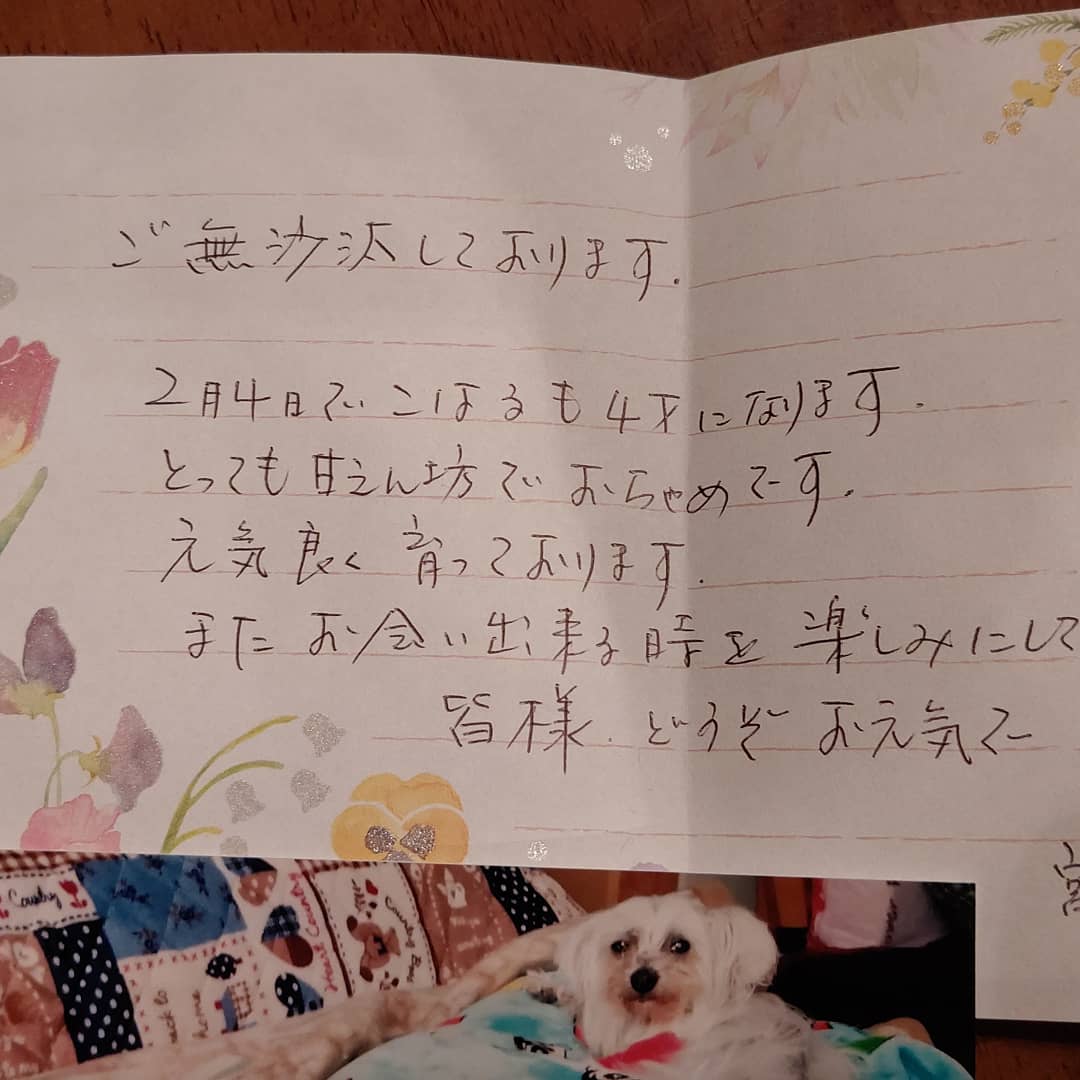 ご無沙汰しております.
2月4日で こはるも 4才になります.
とっても 甘えん坊で おちゃめです.
元気良く 育っております.
また お会い出来る時を 楽しみにして
皆様. どうぞ お元気で
宮
Country
Heart Country
home